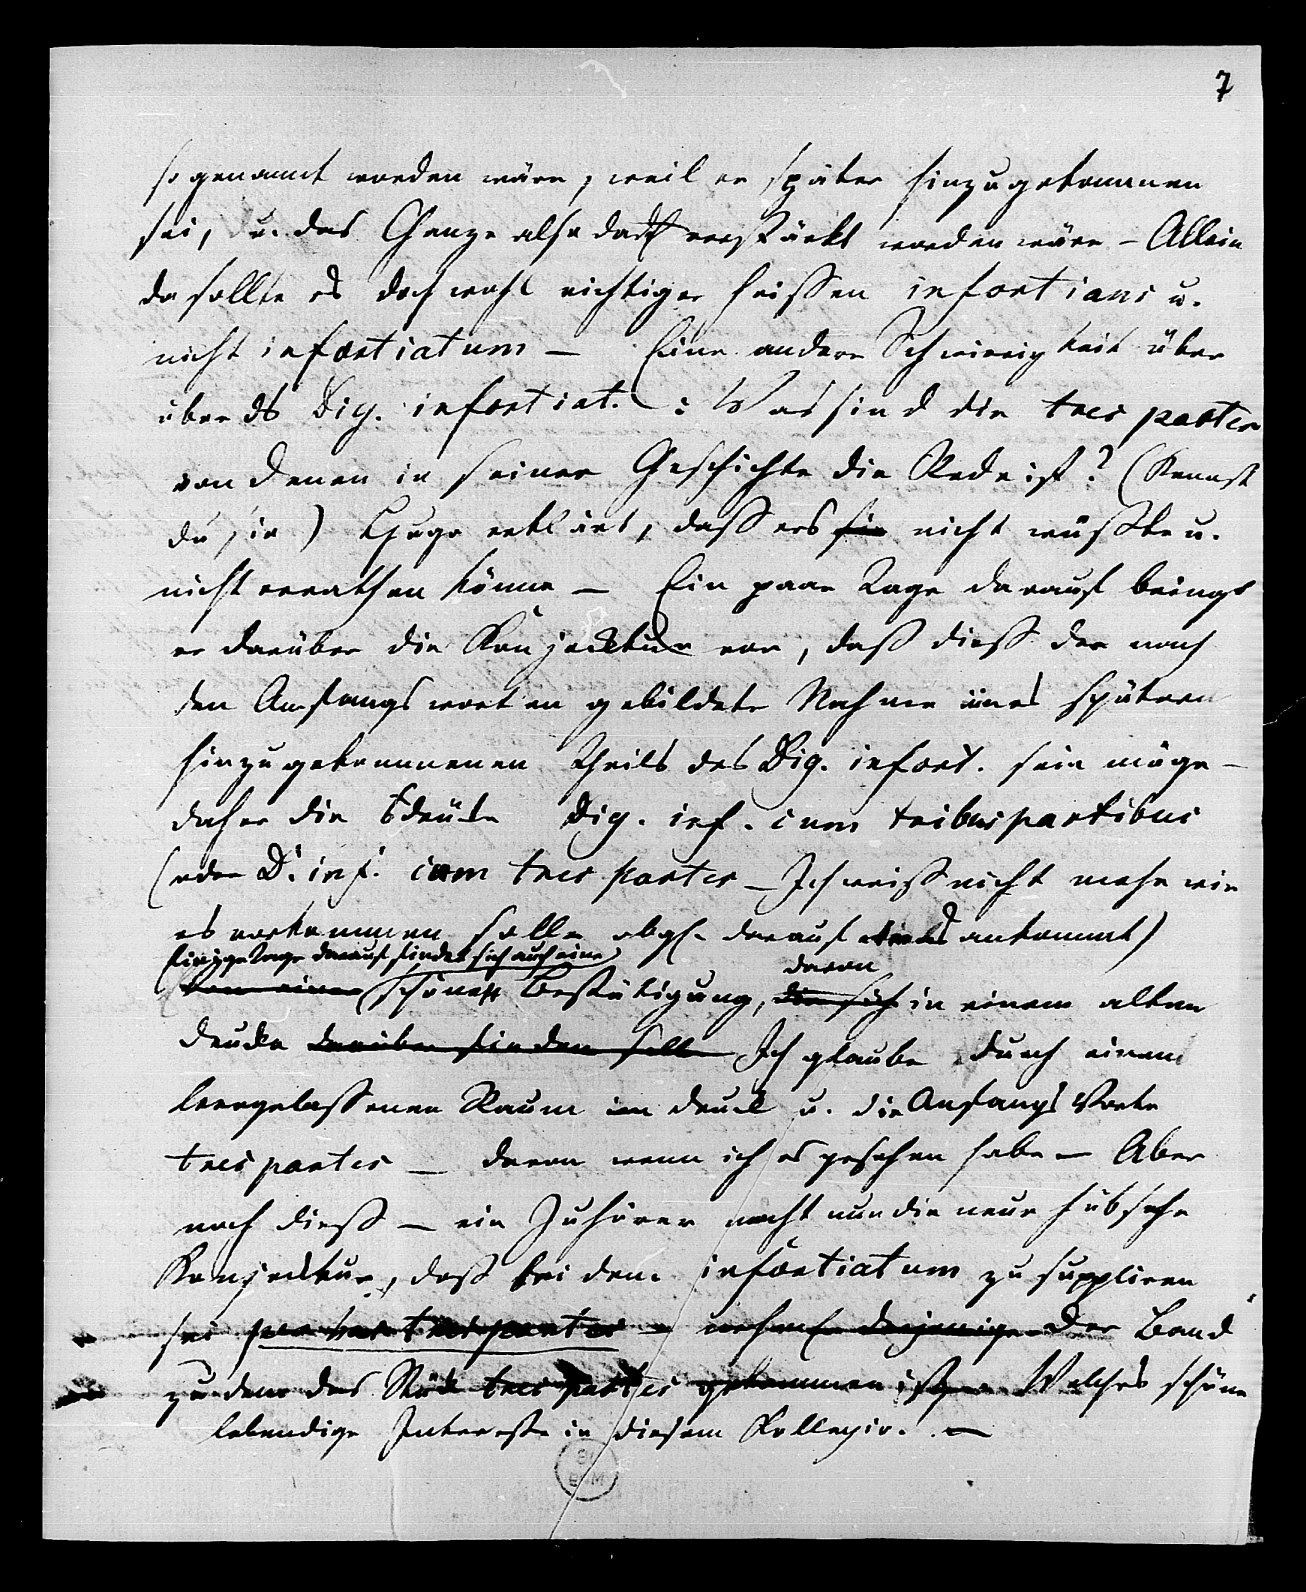 7
so genannt worden wäre, weil er später hinzugekommen
sei, u. das Ganze also dadch verstärkt worden wäre – Allein
da sollte es doch wohl richtiger heissen infortians u.
nicht infortiatum – Eine andere Schwierigkeit über
über ds Dig. infortiat. : Was sind die tres partes
von denen in seiner Geschichte die Rede ist? (Kennst
du sie) Hugo erklärt, dass ers sie nicht wüßte u.
nicht errathen könne – Ein paar Tage darauf bringt
er darüber die Konjecktur vor, daß dieß der nach
den Anfangsworten gebildete Nahme eines spätern
hinzugekommenen Theils des Dig. infort. sein möge –
daher die Drücke Dig. inf. cum tribus partibus
(oder D. inf. cum tres partes – Ich weiß nicht mehr wie
es vorkommen solle obgl. darauf ankommt)
Einige Tage darauf findet sich auch eine
schöne Bestätigung, davon die sich in einem alten
Drucke darüber finden soll Ich glaube durch einen
leergelaßenen Raum im Druck u. die Anfangs Worte
tres partes – davon wenn ich es gesehen habe – Aber
noch dieß – ein Zuhörer macht nun die neue hübsche
Konjecktur, daß bei dem infortiatum zu suppliren
sei per tres partes – derjenige Der Band
zu dem das Stück tres partes gekommen ist Welches schöne
lebendige Interesse in diesem Kollegio. –